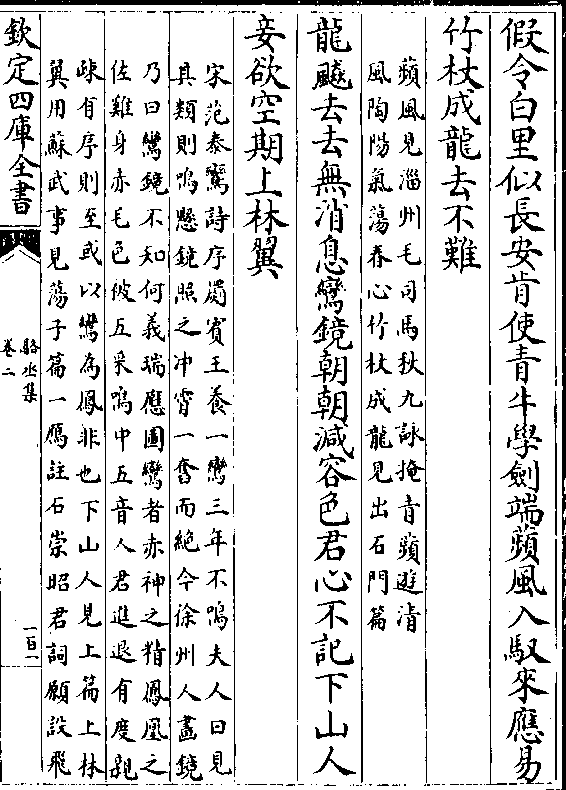 假令白里似長安肯使青牛學劍端蘋風入馭來應易
竹杖成龍去不難
蘋風見淄州毛司馬秋九詠掩青蘋遊清
風陶陽氣蕩春心竹杖成龍見出石門篇
龍飈去去無消息鸞鏡朝朝減容色君心不記下山人
妾欲空期上林翼
宋范泰鸞詩序罽賓王養一鸞三年不鳴夫人曰見
其類則鳴懸鏡照之冲霄一奮而絶今徐州人盡鏡
乃曰鸞鏡不知何義瑞應圖鸞者赤神之精鳳凰之
佐雞身赤毛色彼五采鳴中五音人君進退有度親
疎有序則至或以鸞為鳳非也下山人見上篇上林
翼用蘇武事見蕩子篇一鴈註石崇昭君詞願設飛
欽定四庫全書
駱丞集
卷二
一百一